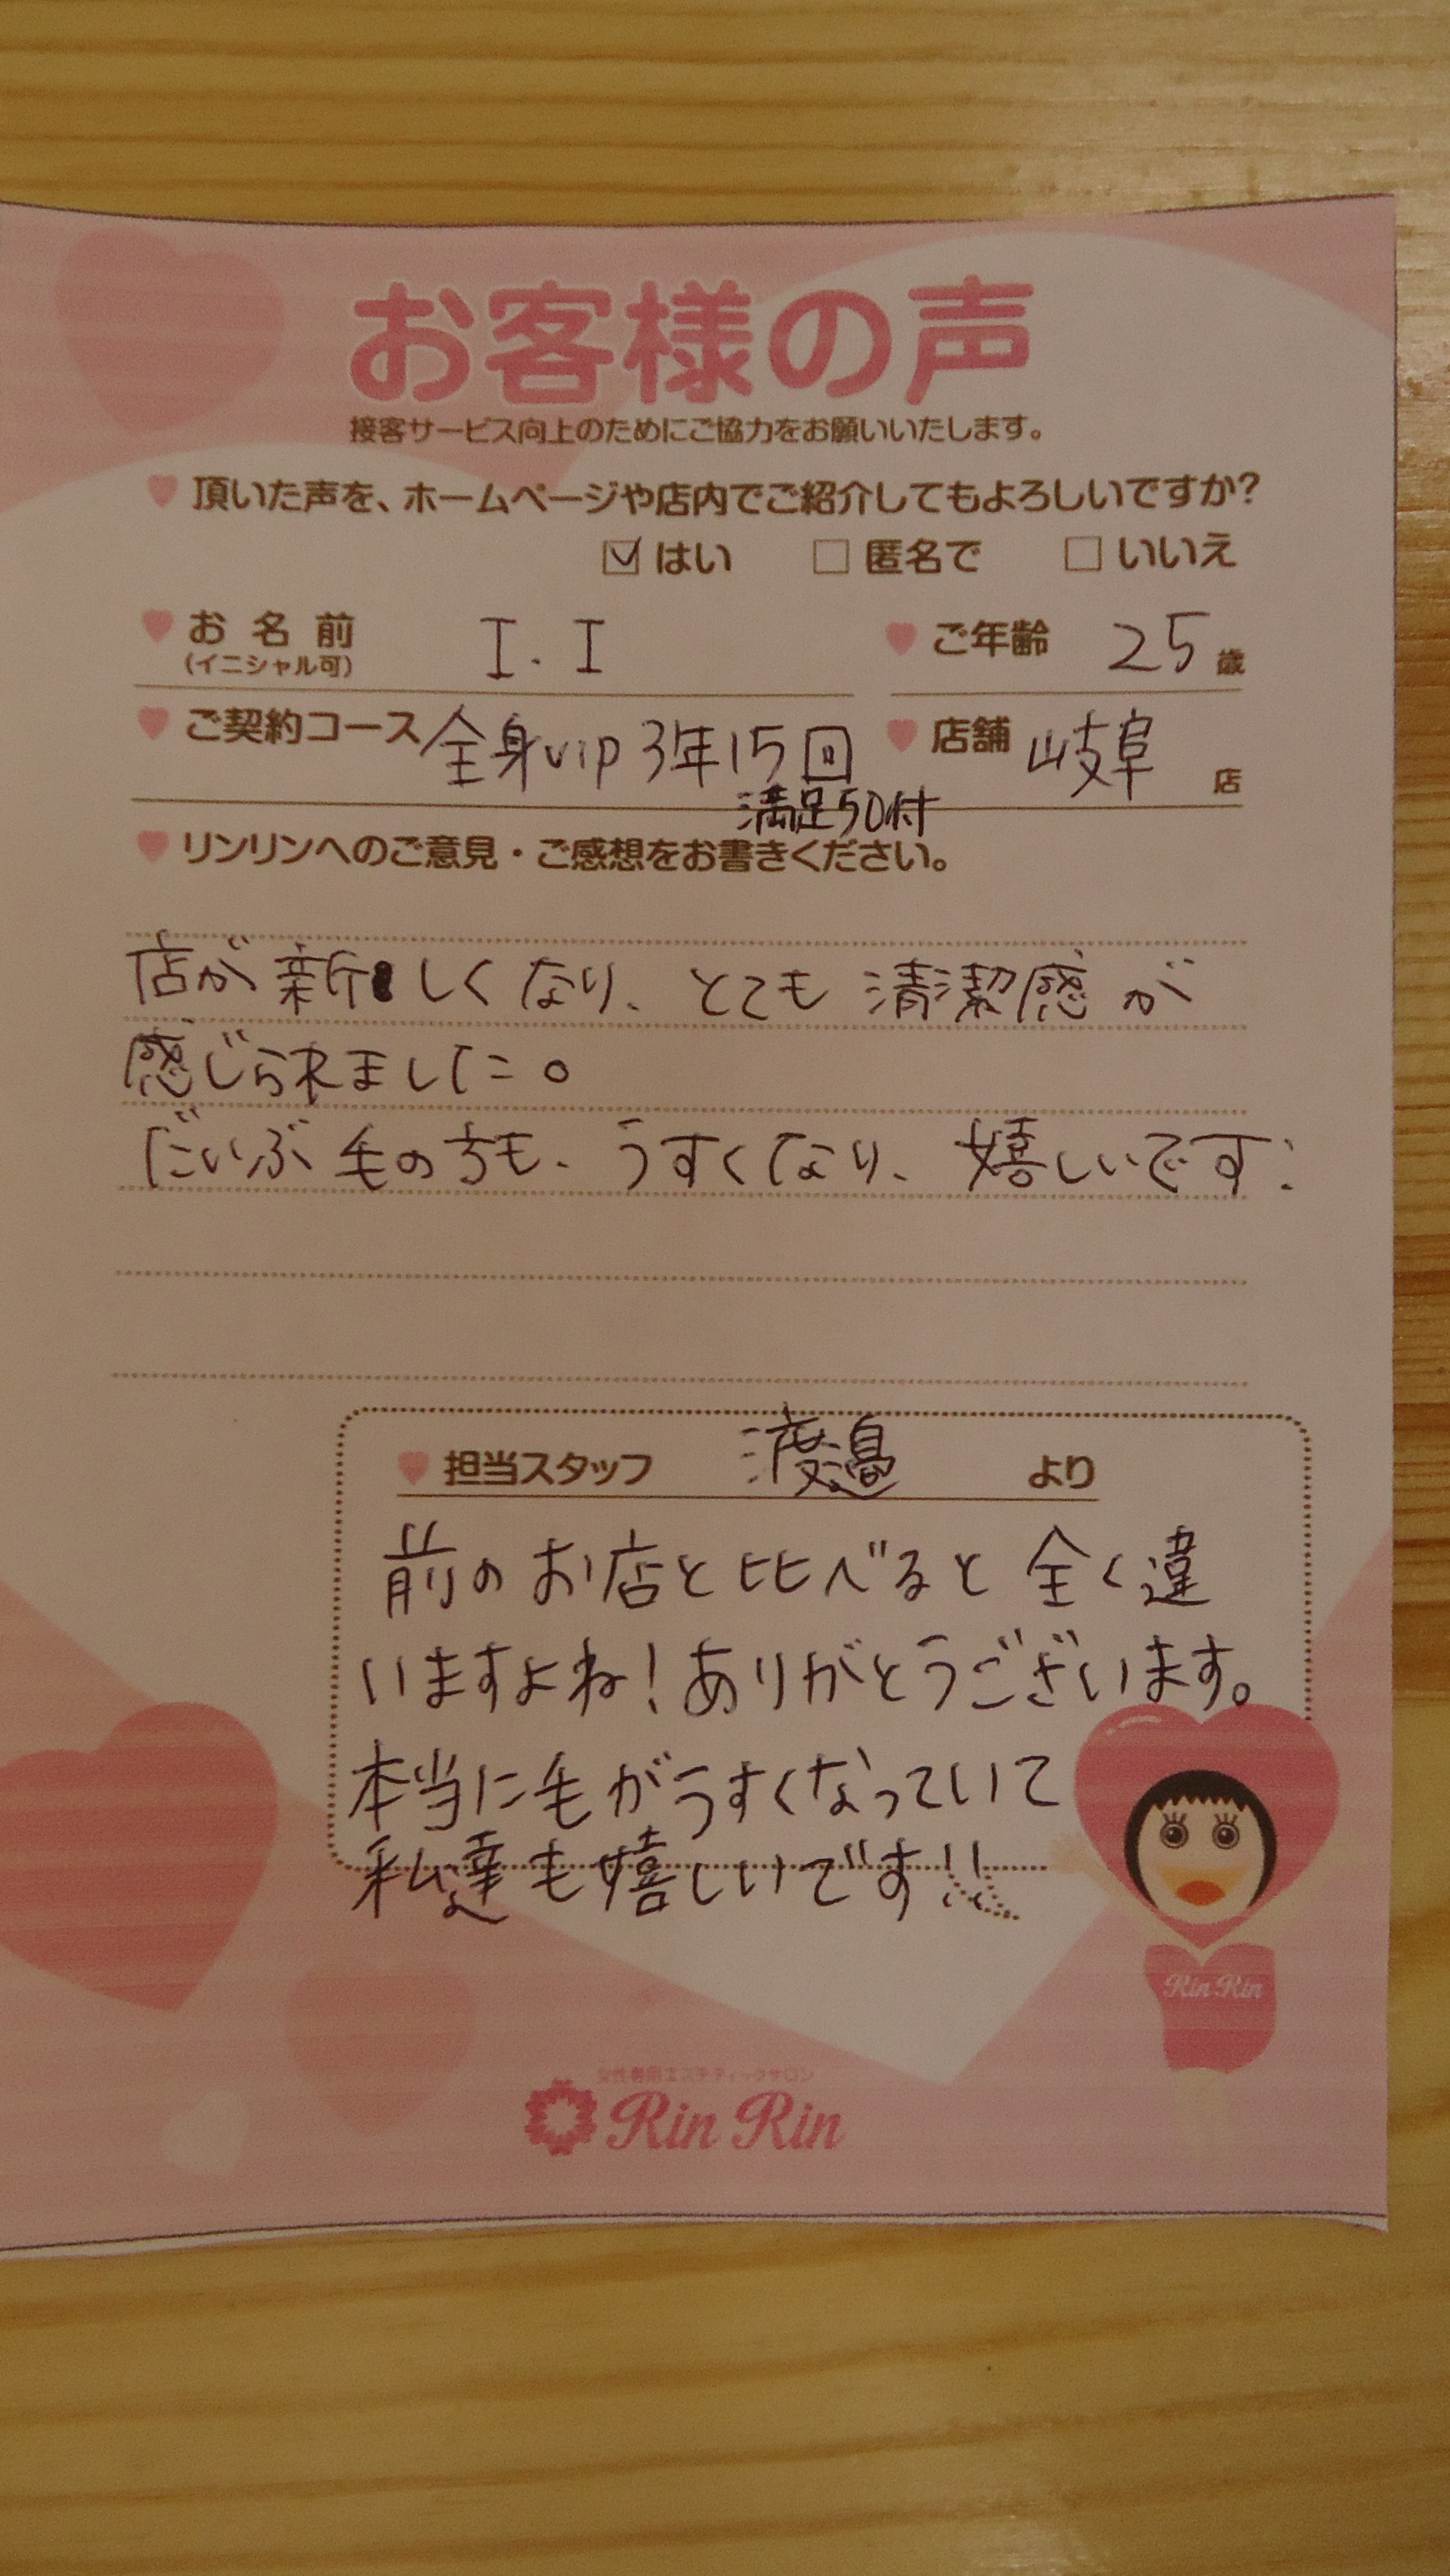 お客様の声
接客サービス向上のためにご協力をお願いいたします。
頂いた声を、ホームページや店内でご紹介してもよろしいですか?
はい 匿名で いいえ
お名前 I.I ご年齢 25 歳
(イニシャル可)
ご契約コース 全身vip 3年15回 店舗 岐阜 店
満足50付
リンリンへのご意見・ご感想をお書きください。
店が新しくなり、とても清潔感が
感じられました。
だいぶ毛の方も、うすくなり、嬉しいです:
担当スタッフ 渡邉 より
前のお店と比べると全く違
いますよね!ありがとうございます。
本当に毛がうすくなっていて
私達も嬉しいです!!
Rin Rin
女性専用エステティックサロン
Rin Rin